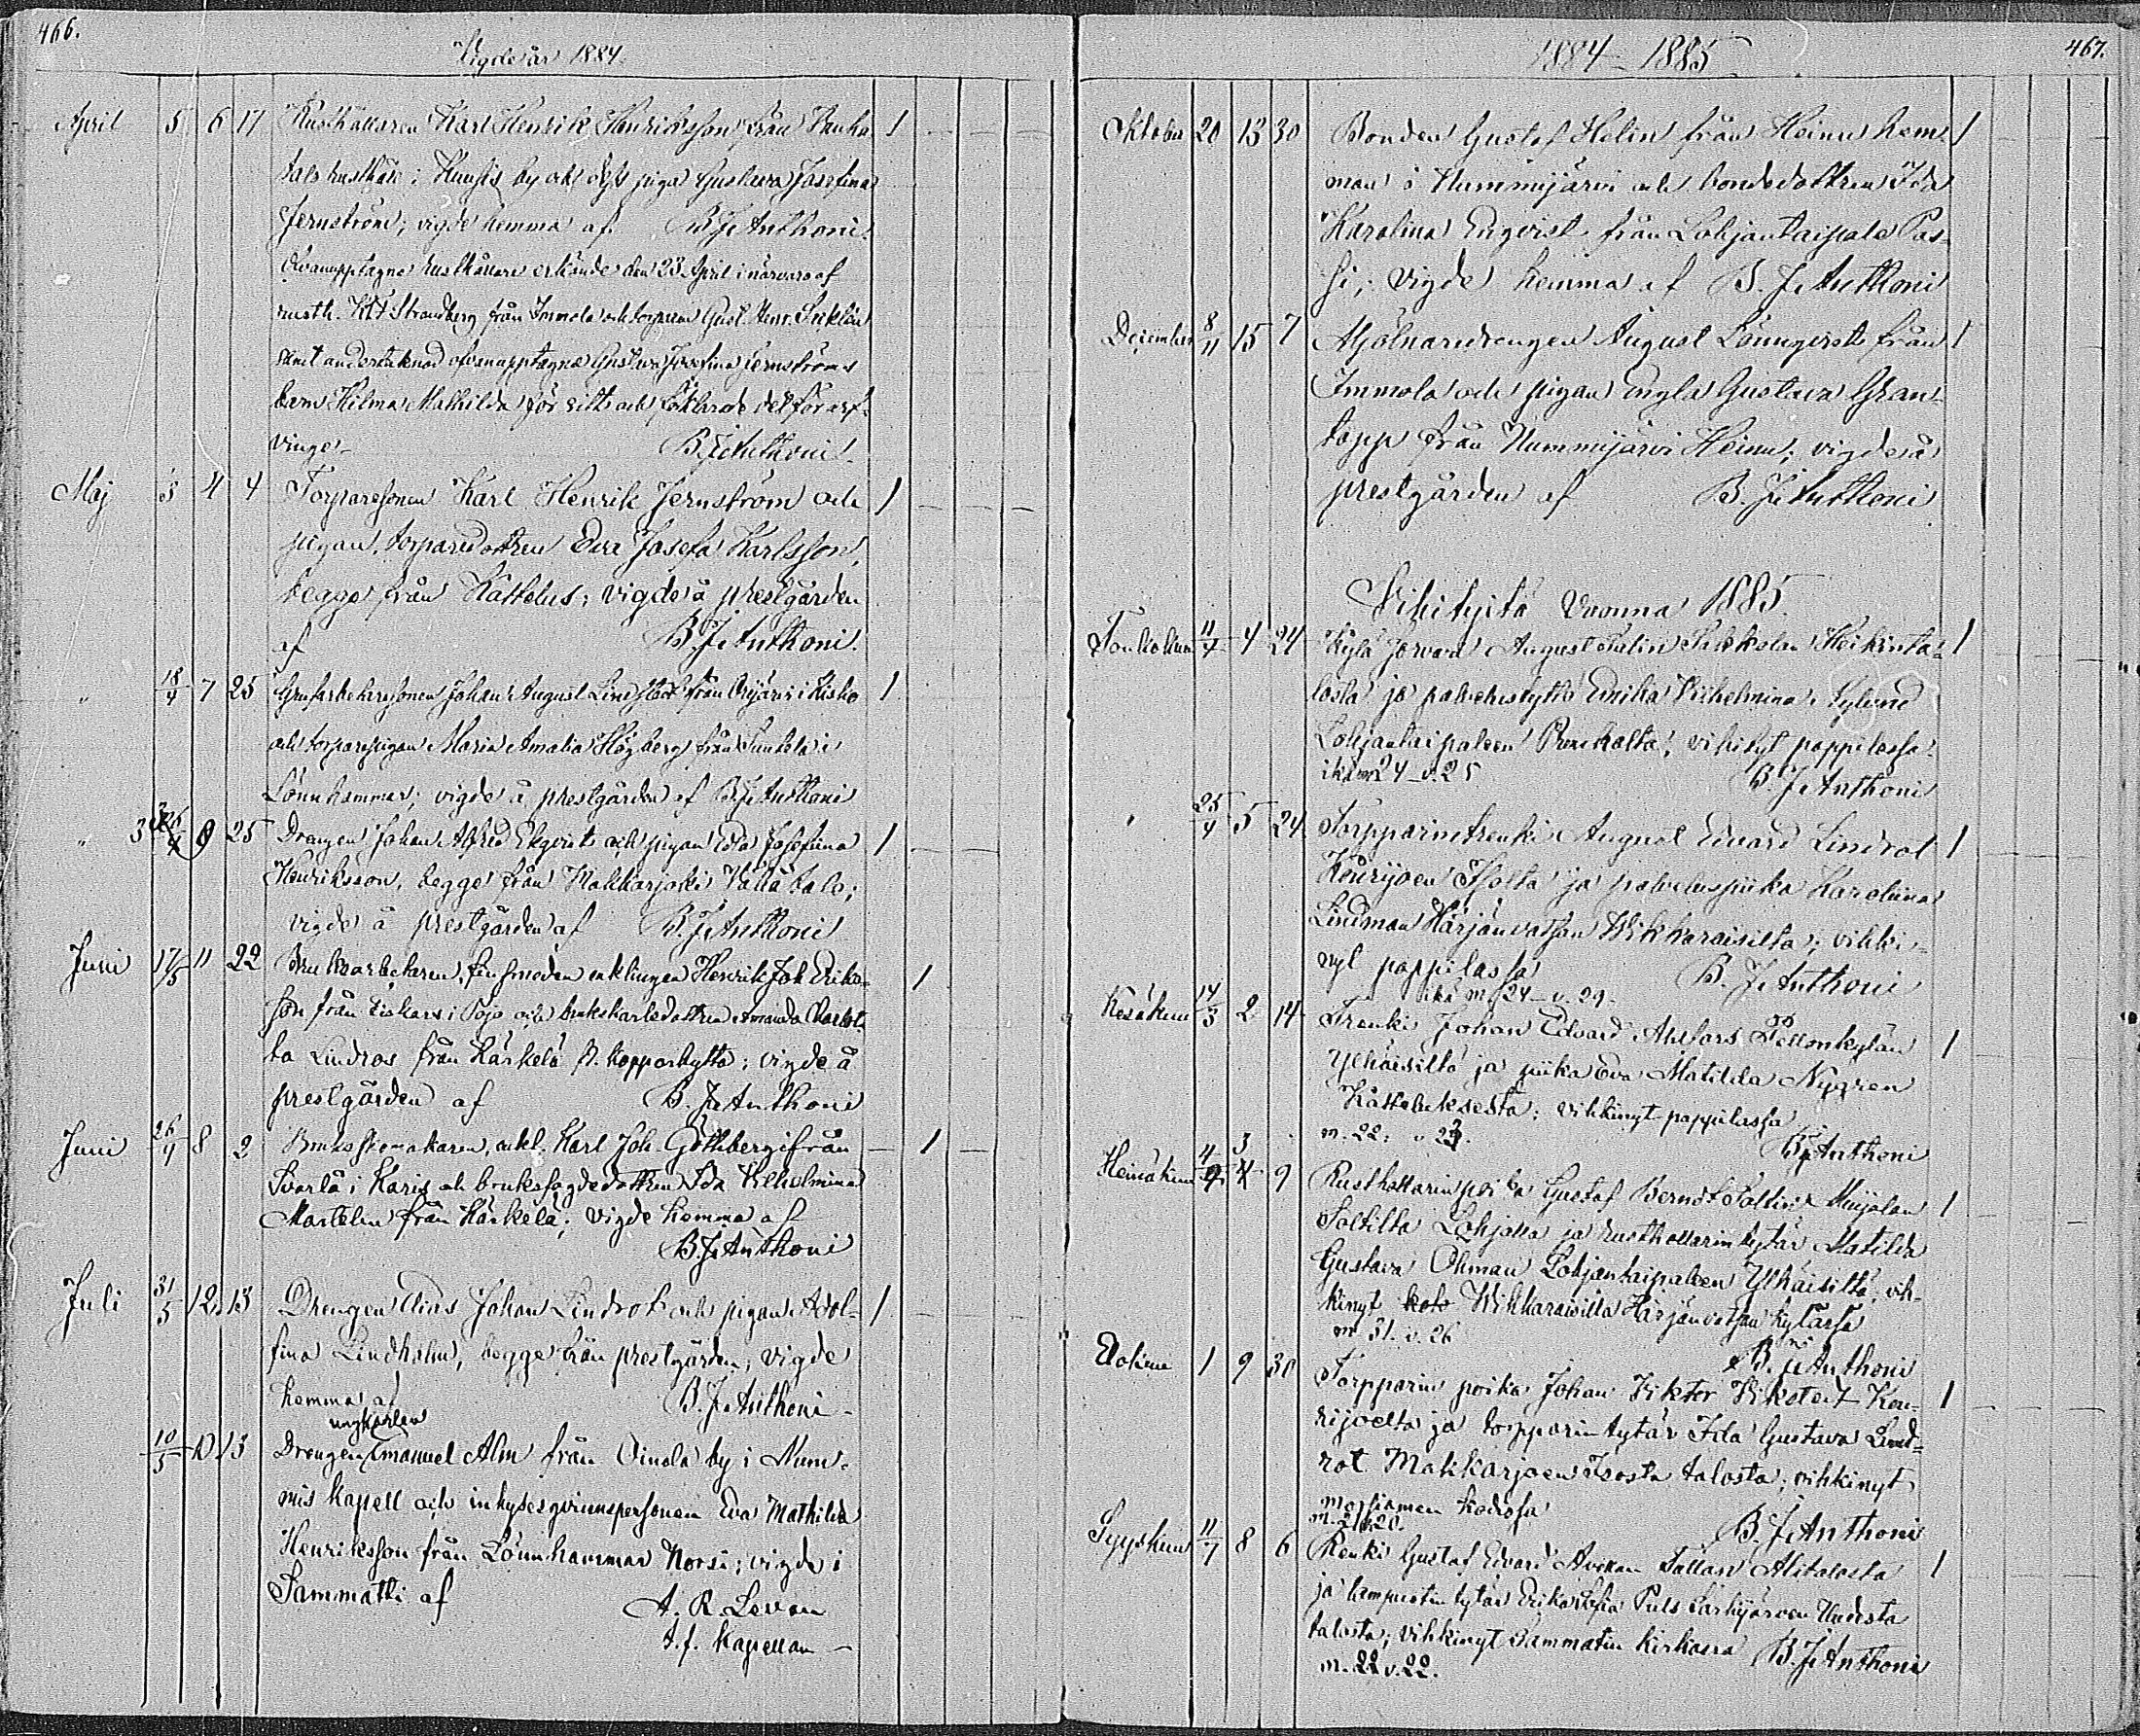 466.
Vigde år 1884.
April 5 6 17 Rusthållaren Karl Henrik Henriksson från 1
tals rusthåll i by och dess piga Gustava Josefina
Jernström; vigde hemma af B. J. Anthoni.
Ofvanupptagne rusthållare erkände den 23 April i närvaro af
rusth. Strandberg från Immola och torparen Gust. Henr.
samt undertecknad ofvanupptagne Gustava Josefina Jernströms
barn Hilma Mathilda för sitt och förklarade det för arf-
vinge. B. J. Anthoni.
Maj 3 4 4 Torparesonen Karl Henrik Jernström och 1
pigan, torparedottren Eva Josefa Karlsson,
begge från Kattelus; vigde å prestgården
af B. J. Anthoni.
" 18/4 7 25 Grufarbetaresonen Johan August Lindstedt från Orijärvi i Kisko 1
och torparepigan Maria Amalia Högberg från i
Lönnhammar; vigde å prestgården af B. J. Anthoni
" 25 Drengen Johan Alfred Ekqvist och pigan Eda Josefina 1
Henriksson, begge från Makkarjoki talo;
vigde å prestgården af B. J. Anthoni
Juni 17/5 11 22 Bruksarbetaren, enklingen Henrik Joh. Eriks- 1
son från Fiskars i Pojo och brukskarledottren Amanda Charlot-
ta Lindros från Kärkelä ; vigde å
prestgården af B. J. Anthoni
Juni 26/4 8 2 Bruksskomakaren, enkl. Karl Joh. Göthberg ifrån 1
Svarta i Karis och bruksfogdedottren Ida Vilhelmina
Martelin från Kärkelä; vigde hemma af
B. J. Anthoni
Juli 31/5 12 13 Drengen Elias Johan Lindrot och pigan Adol- 1
fina Lindholm, begge från prestgården; vigde
hemma af B. J. Anthoni
ungkarlen
10/5 13 Drengen Emanuel Alm från Oinola by i Num-
mis kapell och inhysesqvinnspersonen Eva Mathilda
Henriksson från Lönnhammar Norsi; vigde i
Sammatti af A. R. Levan
t. f. Kapellan
1884 - 1885
467.
Oktober 20 13 30 Bonden Gustaf Helin från Heinu hem- 1
man i Nummijärvi och bondedottren Ida
Karolina Enqvist från Lohjantaipale Pas-
si; vigde hemma af B. J. Anthoni
December 8/11 15 7 Mjölnaredrengen August Lönnqvist från 1
Immola och pigan Engla Gustava Gran-
topp från Nummijärvi Heinu; vigde å
prestgården af B. J. Anthoni
Vihityitä Vuonna 1885.
Toukokuu 11/4 4 24 August Salin Sakkolan Heikinta- 1
losta ja palvelustyttö Emilia Vilhelmina Nylund
Lohjantaipaleen ; vihityt pappilassa.
ikä m 24 - v. 25 B. J. Anthoni
" 25/4 5 24 Torpparin renki August Edvard Lindrot 1
Kourjoen Isosta ja palveluspiika Karoliina
Lindman Härjänvatsan Wikkaraisilta; vihki-
nyt pappilassa B. J. Anthoni
ikä m. 24 - v. 29.
Kesäkuu 14/3 2 14 Renki Johan Edvard Ahlfors Pellonkylän 1
Ylhäisiltä ja piika Eva Matilda Nygren
Kättelyksestä; vihkinyt pappilassa
m. 22: v. 23. B. J. Anthoni
Heinäkuu 9 Rusthollarin poika Gustaf Berndt Saltin Muijalan 1
Soltilta Lohjalla ja rusthollarin tytär Matilda
Gustava Öhman Lohjantaipaleen Ylhäisiltä; vih-
kinyt Wikkaraisilla Härjänvatsan kylässä
m 31. v. 26 B. J. Anthoni
Elokuu 1 9 30 Torpparin poika Johan Viktor Vikstedt Kou- 1
rijoelta ja torpparin tytär Ida Gustava Lind-
rot Makkarjoen Isosta talosta; vihkinyt
morsiamen kodossa
m. 21 v. 20. B. J. Anthoni
Syyskuu 11/7 8 6 Renki Gustaf Edvard Alitalosta 1
ja lampuotin tytär Erika Sofia Puls Särkijärven Uudesta
talosta; vihkinyt Sammatin kirkossa B. J. Anthoni
m. 22 v. 22.